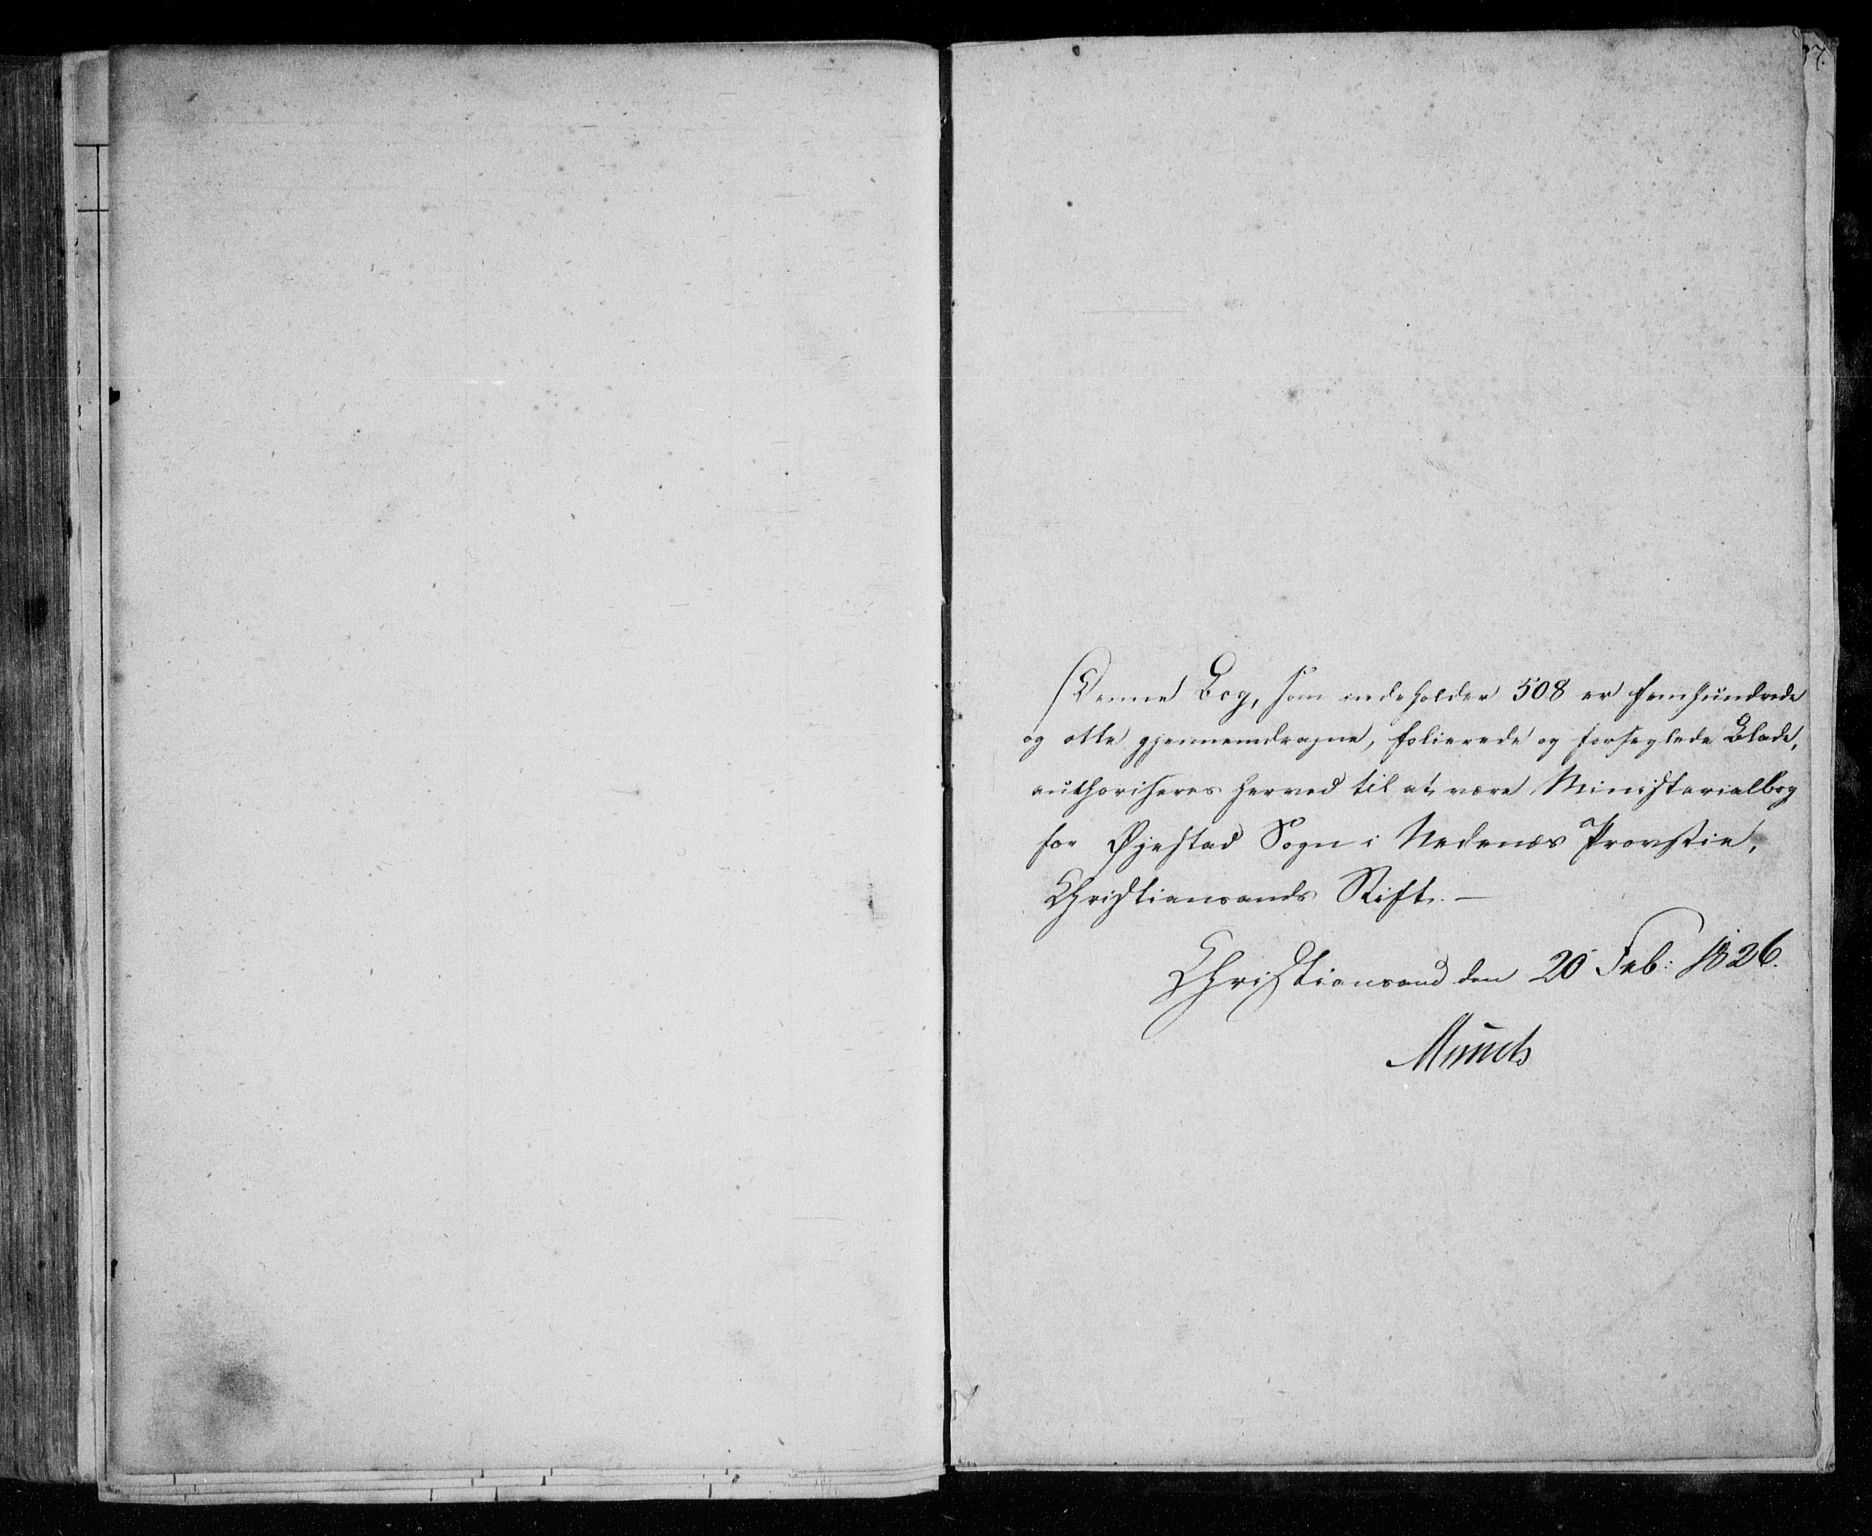 37.
Denne Bog, som indeholder 508 er femhundrede
og otte gjennemdragne, folierede og forseglede Blade,
authoriseres herved til at være Ministerialbog
for Øjestad Sogn i Nedenæs Provstie,
Christiansands Stift. —
Christiansand den 20 Feb: 1826.
Münch